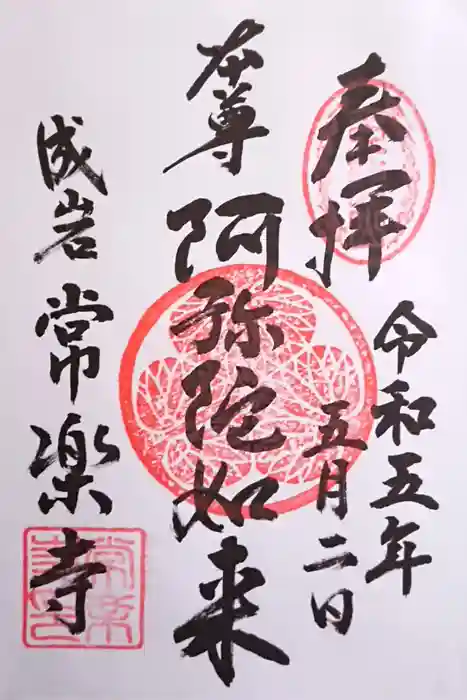 奉拝
令和五年
五月二日
本尊 阿弥陀如来
成岩 常楽寺